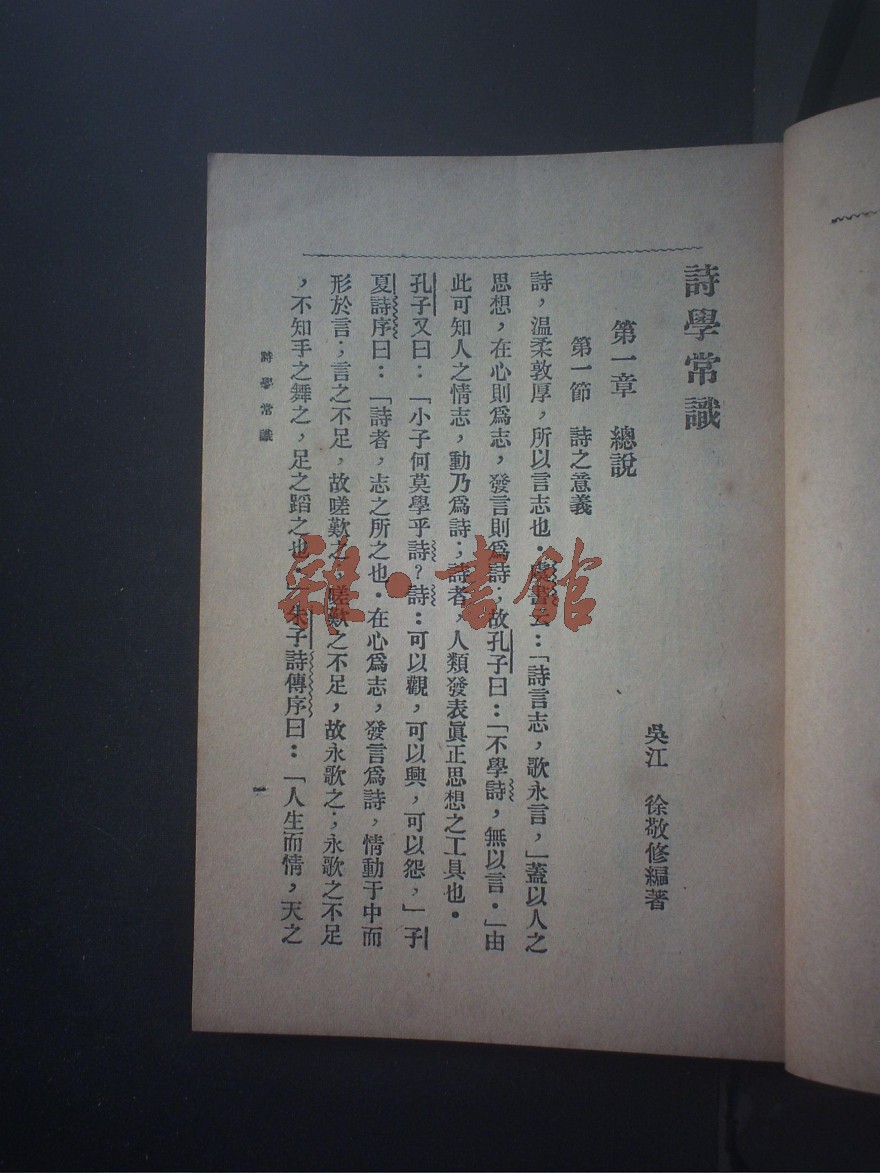 詩學常識
吳江　徐敬修編著
第一章　總說
第一節　詩之意義
詩，溫柔敦厚，所以言志也．虞書云：「詩言志，歌永言，」蓋以人之
思想，在心則爲志，發言則爲詩；故孔子曰：「不學詩，無以言．」由
此可知人之情志，動乃爲詩；詩者，人類發表眞正思想之工具也．
孔子又曰：「小子何莫學乎詩？詩：可以觀，可以興，可以怨，」子
夏詩序曰：「詩者，志之所之也．在心爲志，發言爲詩，情動于中而
形於言；言之不足，故嗟歎之，嗟歎之不足，故永歌之；永歌之不足
，不知手之舞之，足之蹈之也．」朱子詩傳序曰：「人生而情，天之
詩學常識
一
雜・書館